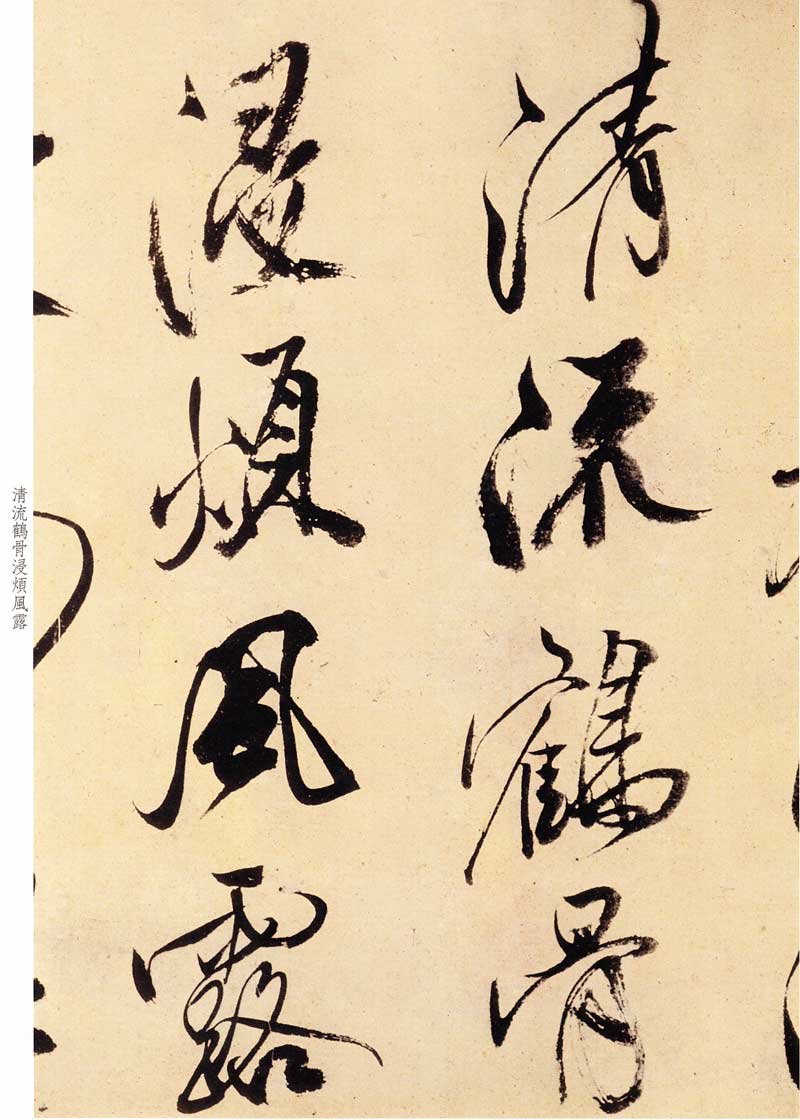 清流鶴骨
浸煩風露
清流鶴骨浸煩風露